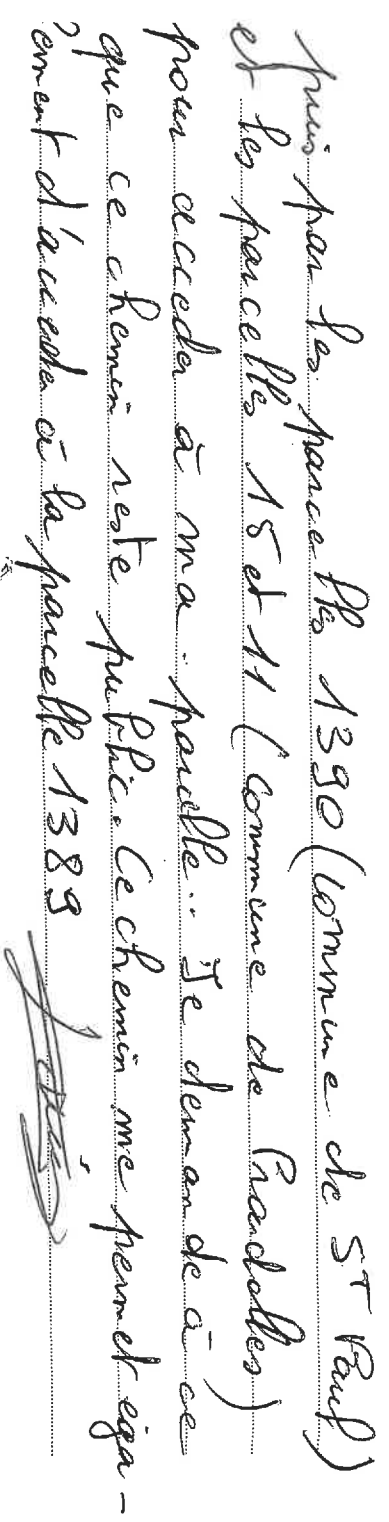 puis par les parcelles 1390 (commune de St Paul)
et les parcelles 15 et 11 (commune de Pradelles)
pour acceder à ma parcelle. Je demande à ce
que ce chemin reste public. Ce chemin me permet éga-
lement d'acceder à la parcelle 1389